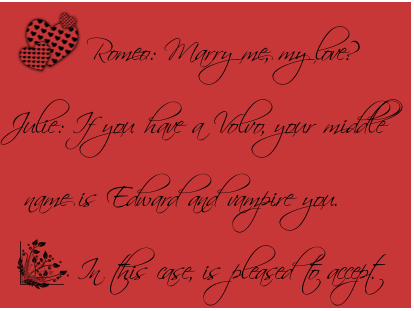 Romeo: Marry me, my love?
Julie: If you have a Volvo, your middle
name is Edward and vampire you.
In this case, is pleased to accept.